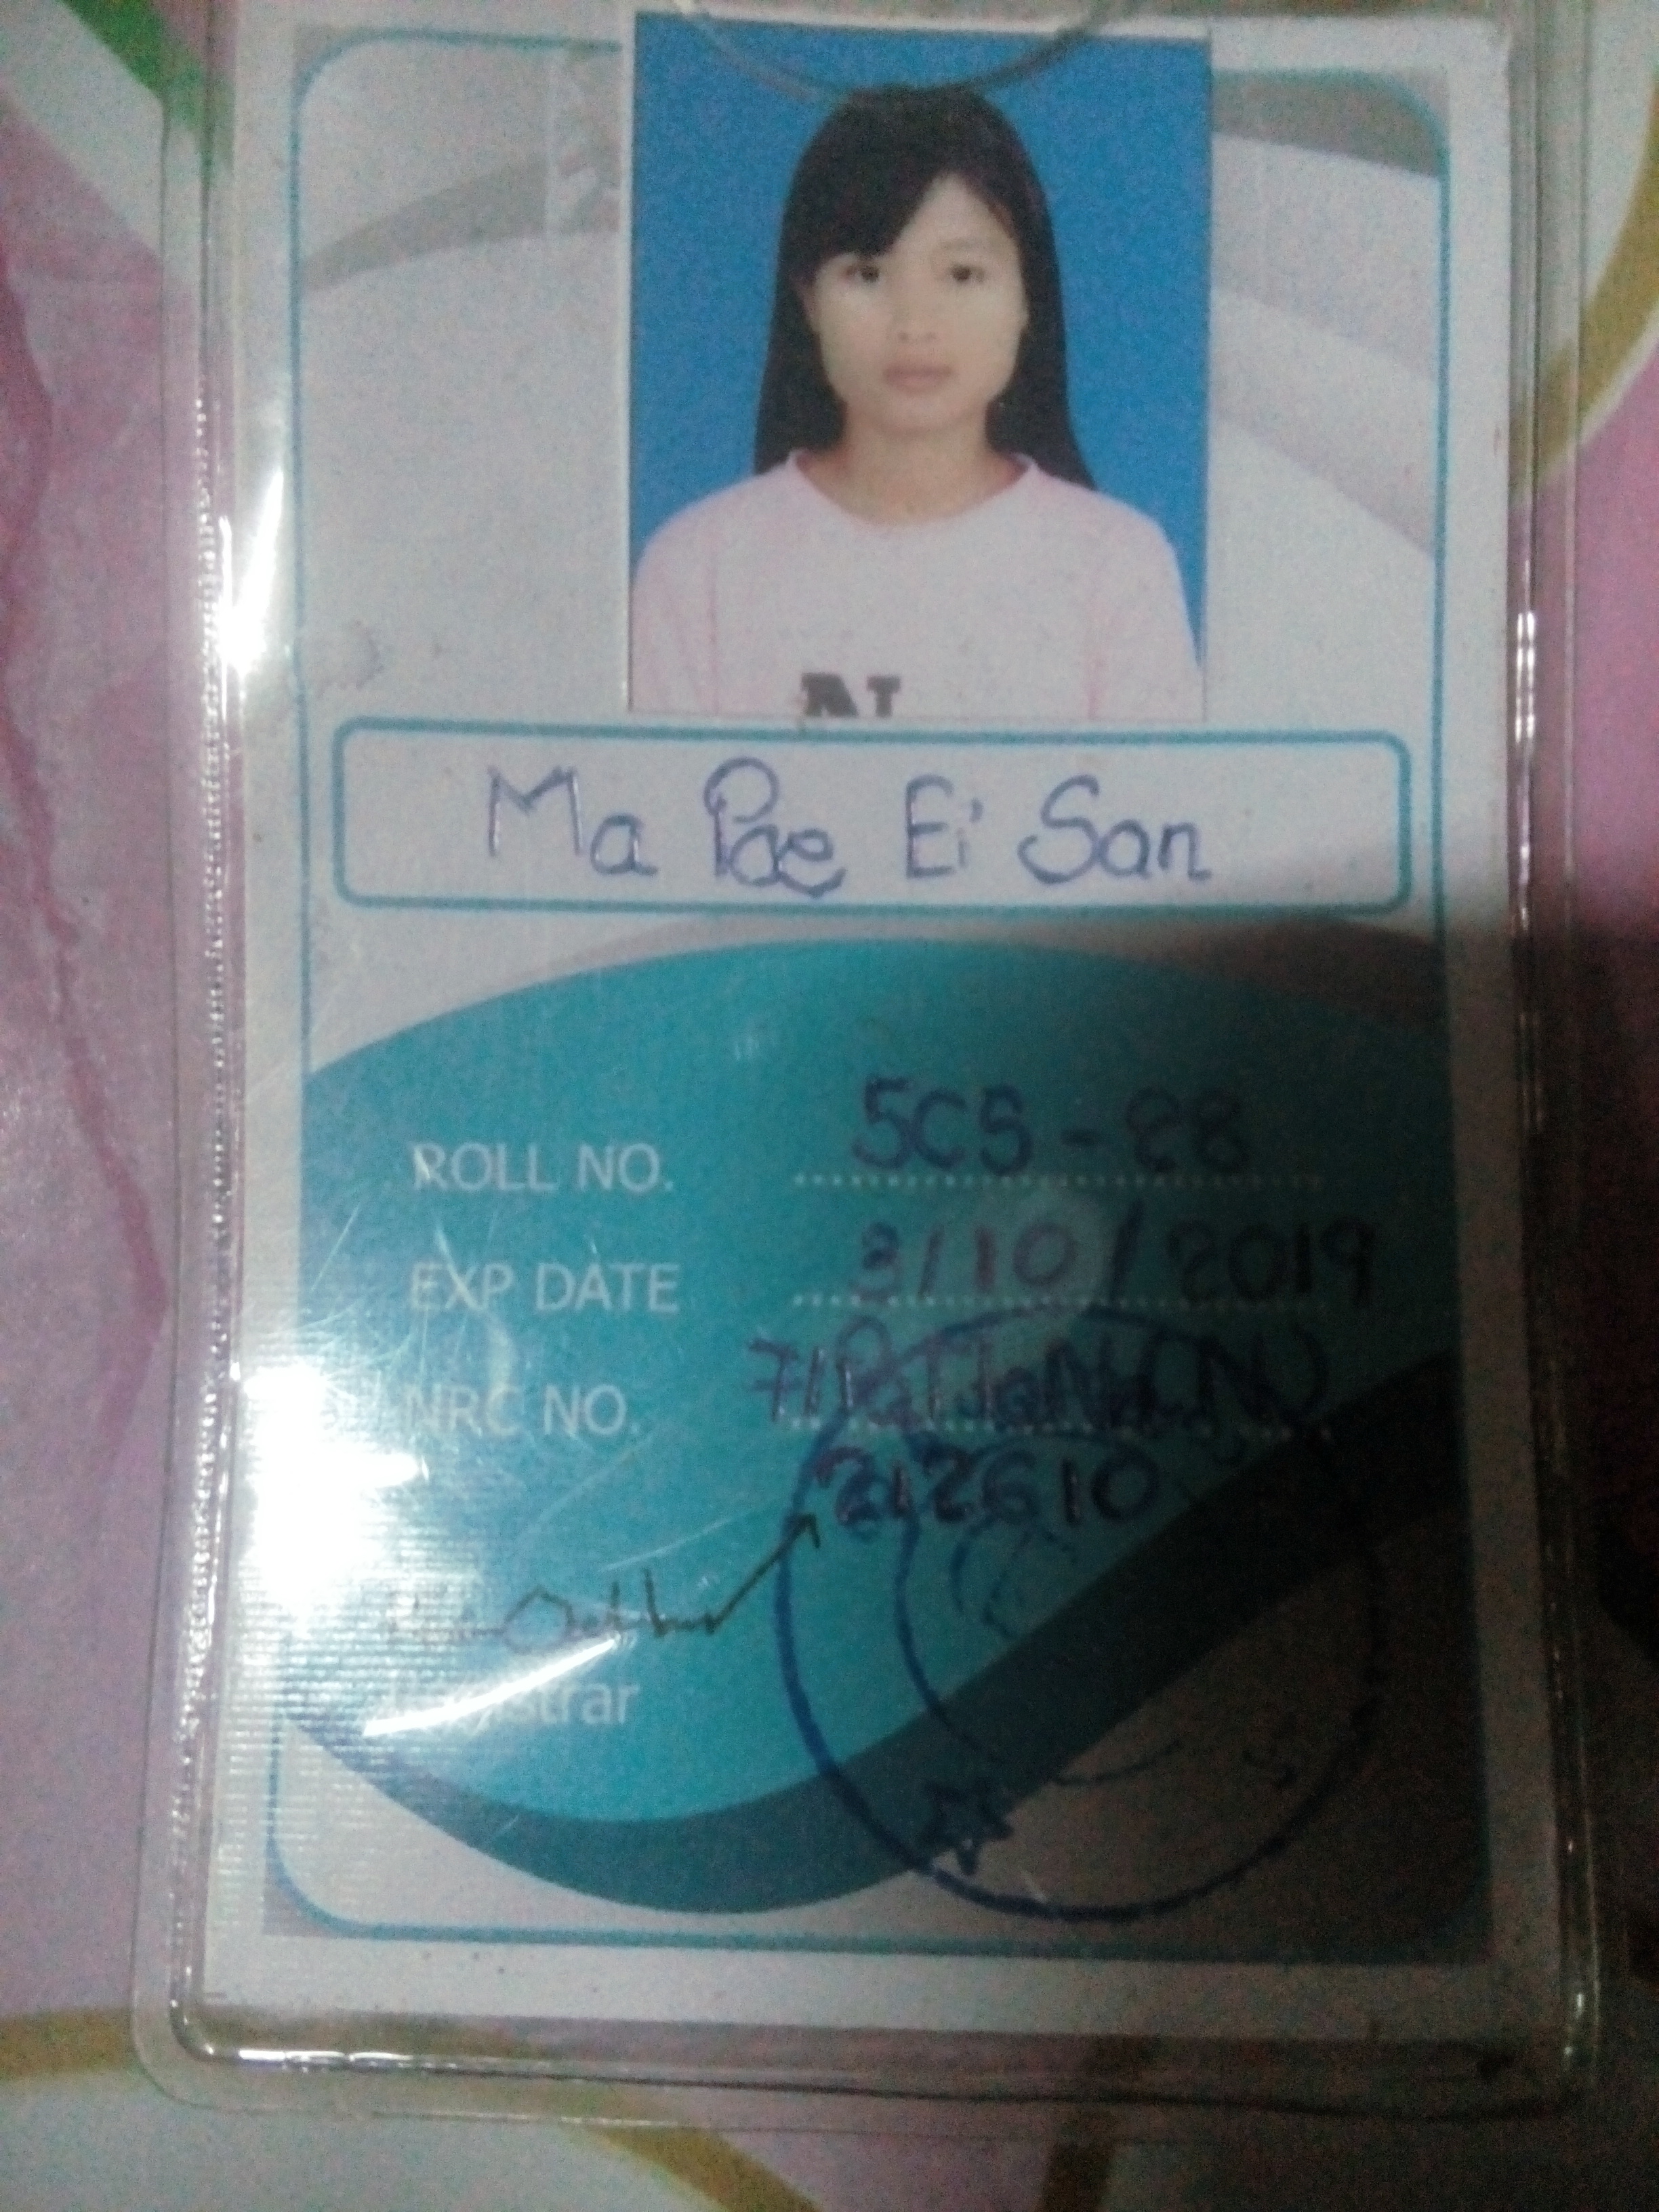 N
Ma Pae Ei San
ROLL NO. 5CS-28
EXP DATE 3/10/2019
NRC NO.
212610
Registrar